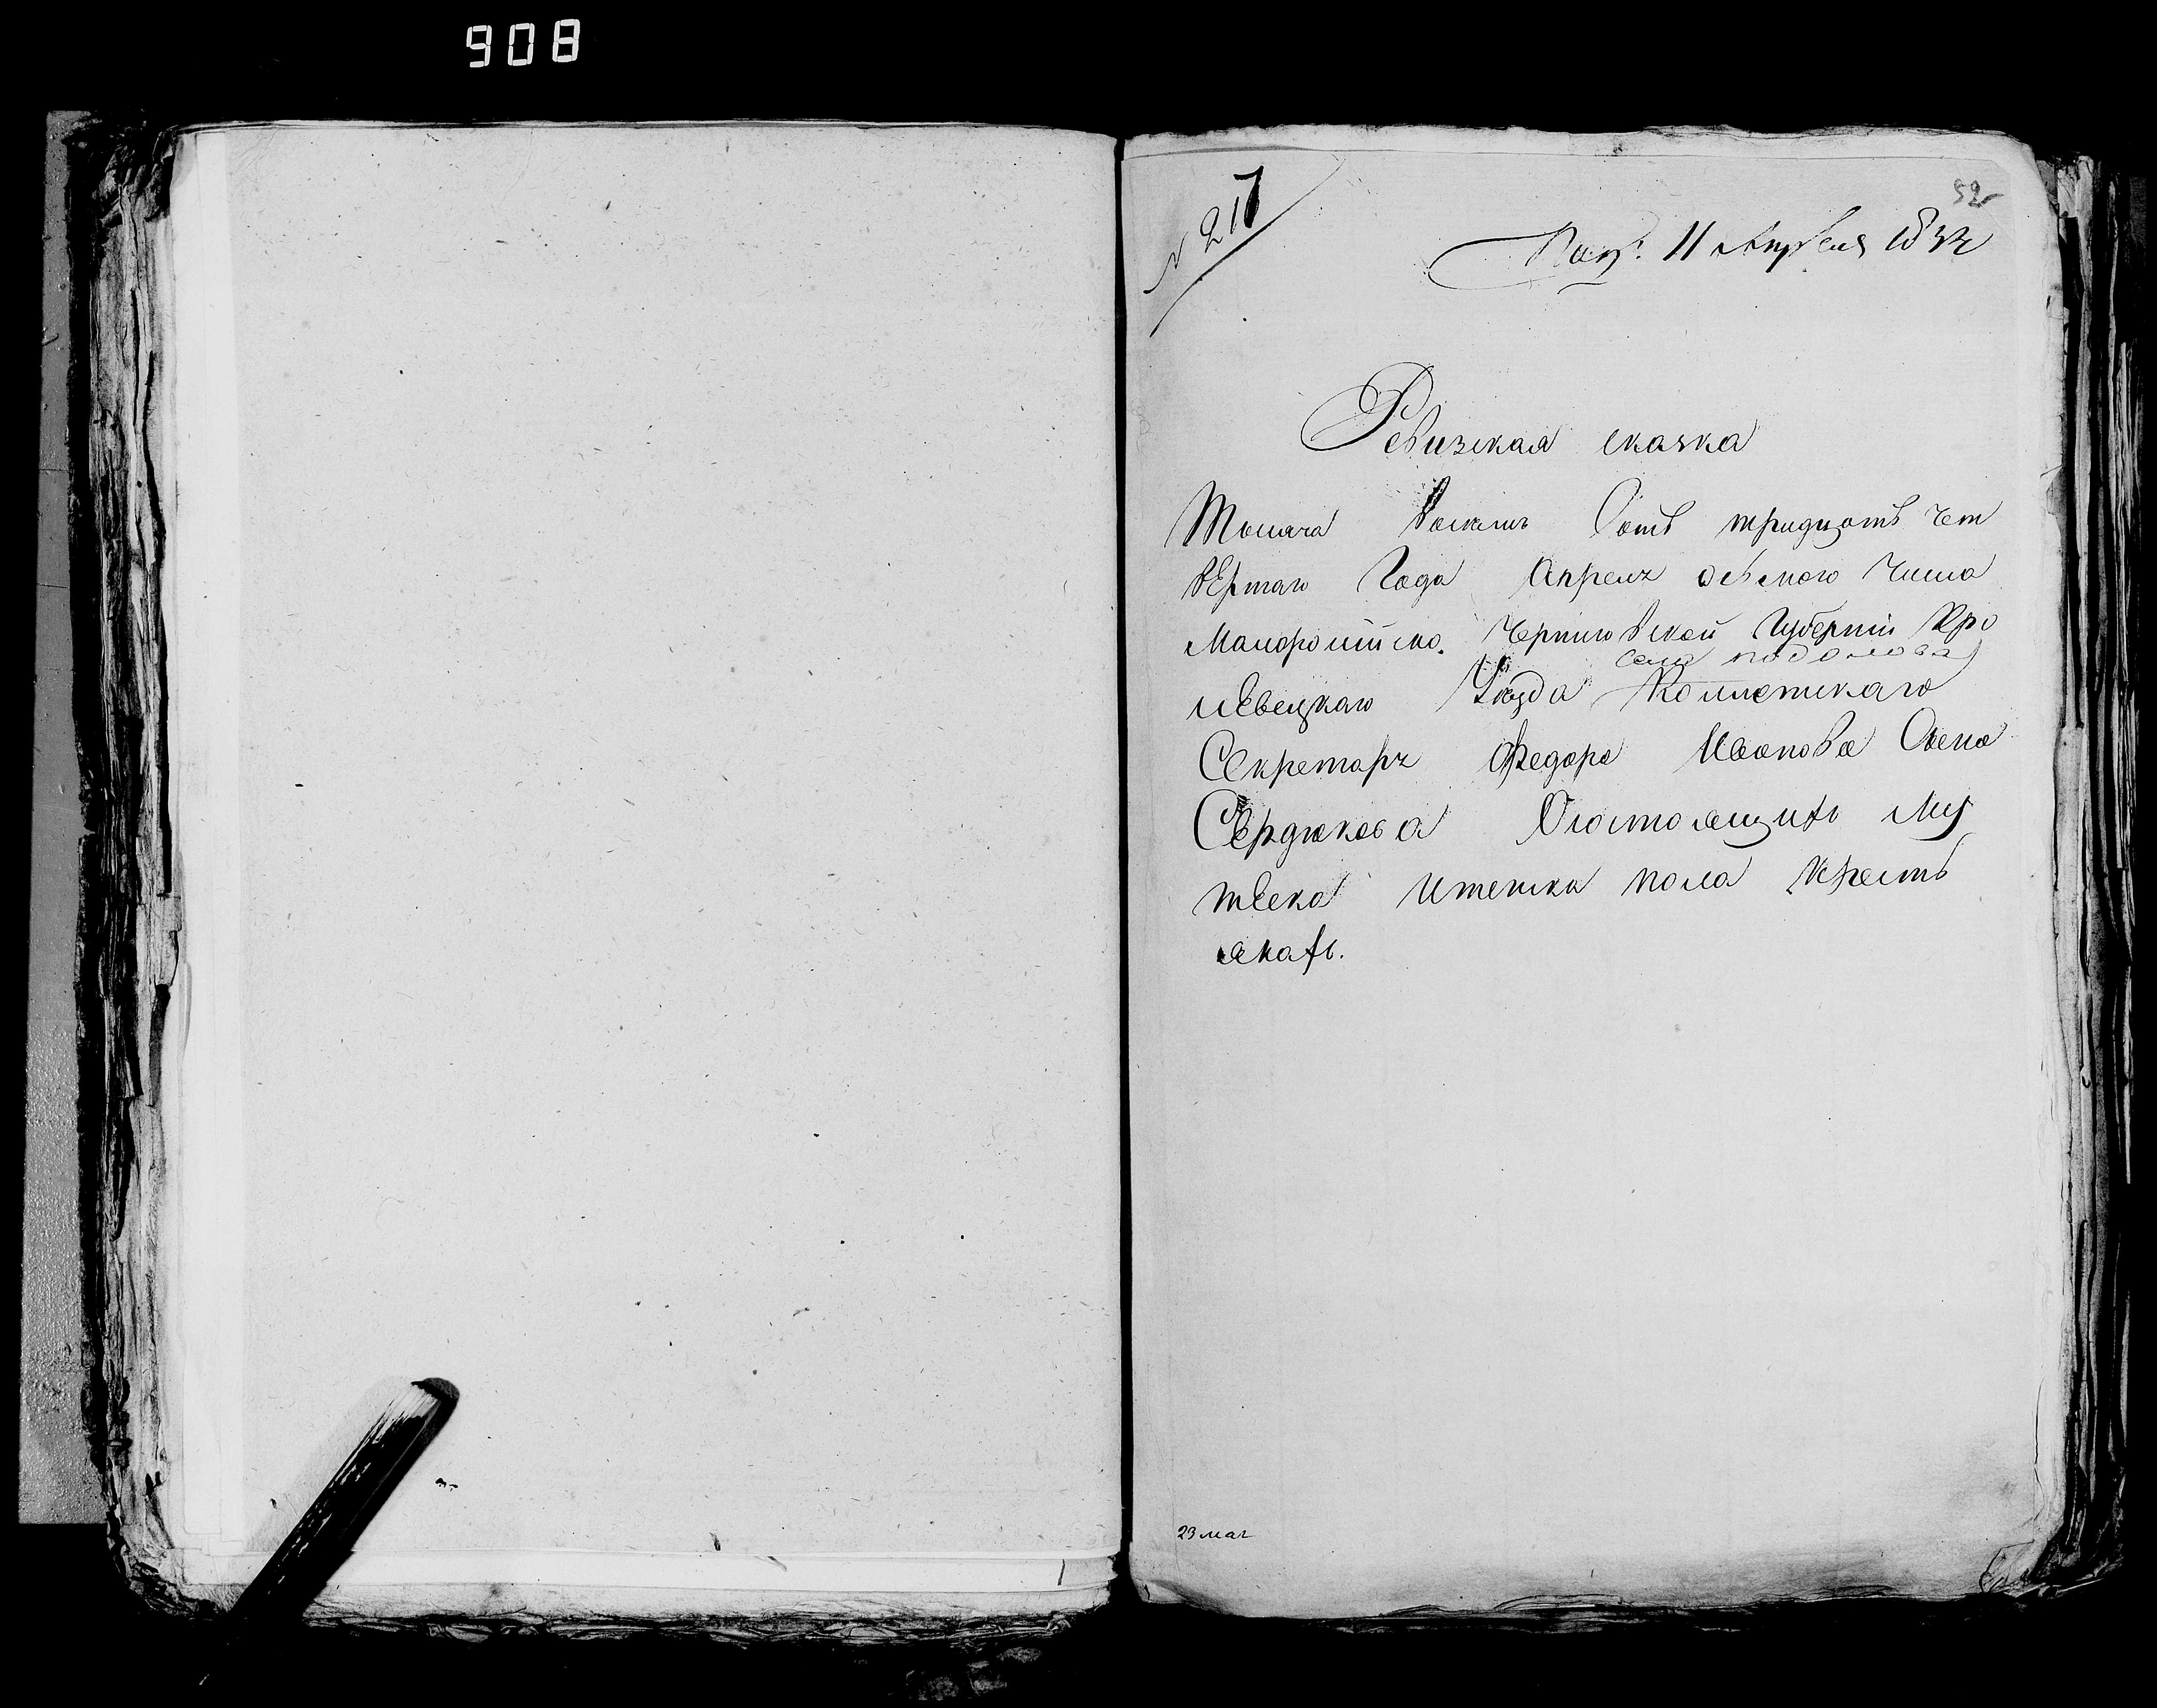 908
N 217
52
Пол: 11 Апреля 1834
Ревизская сказка
Тысяча восемь Сотъ тридцать чет
вертаго Года Апреля осьмого Числа
Малоросийско. Черниговской Губернiи Кро
села подолова
левецкаго Уезда Колležскаго
Секретаря Федора Иванова Сына
Сердюкова Остоящихъ Му
жеска иженска пола кресть
янахъ.
23 маг